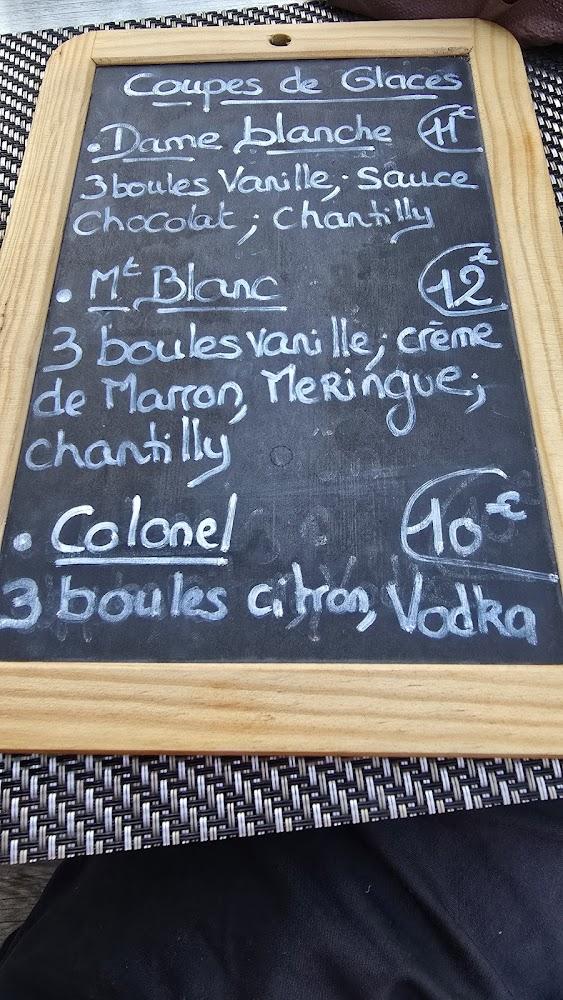 Coupes de Glaces
• Dame blanche 11€
3 boules Vanille; Sauce
Chocolat; Chantilly
• Mt Blanc 12€
3 boules vanille; crème
de Marron, Meringue;
chantilly
• Colonel 10€
3 boules citron, Vodka